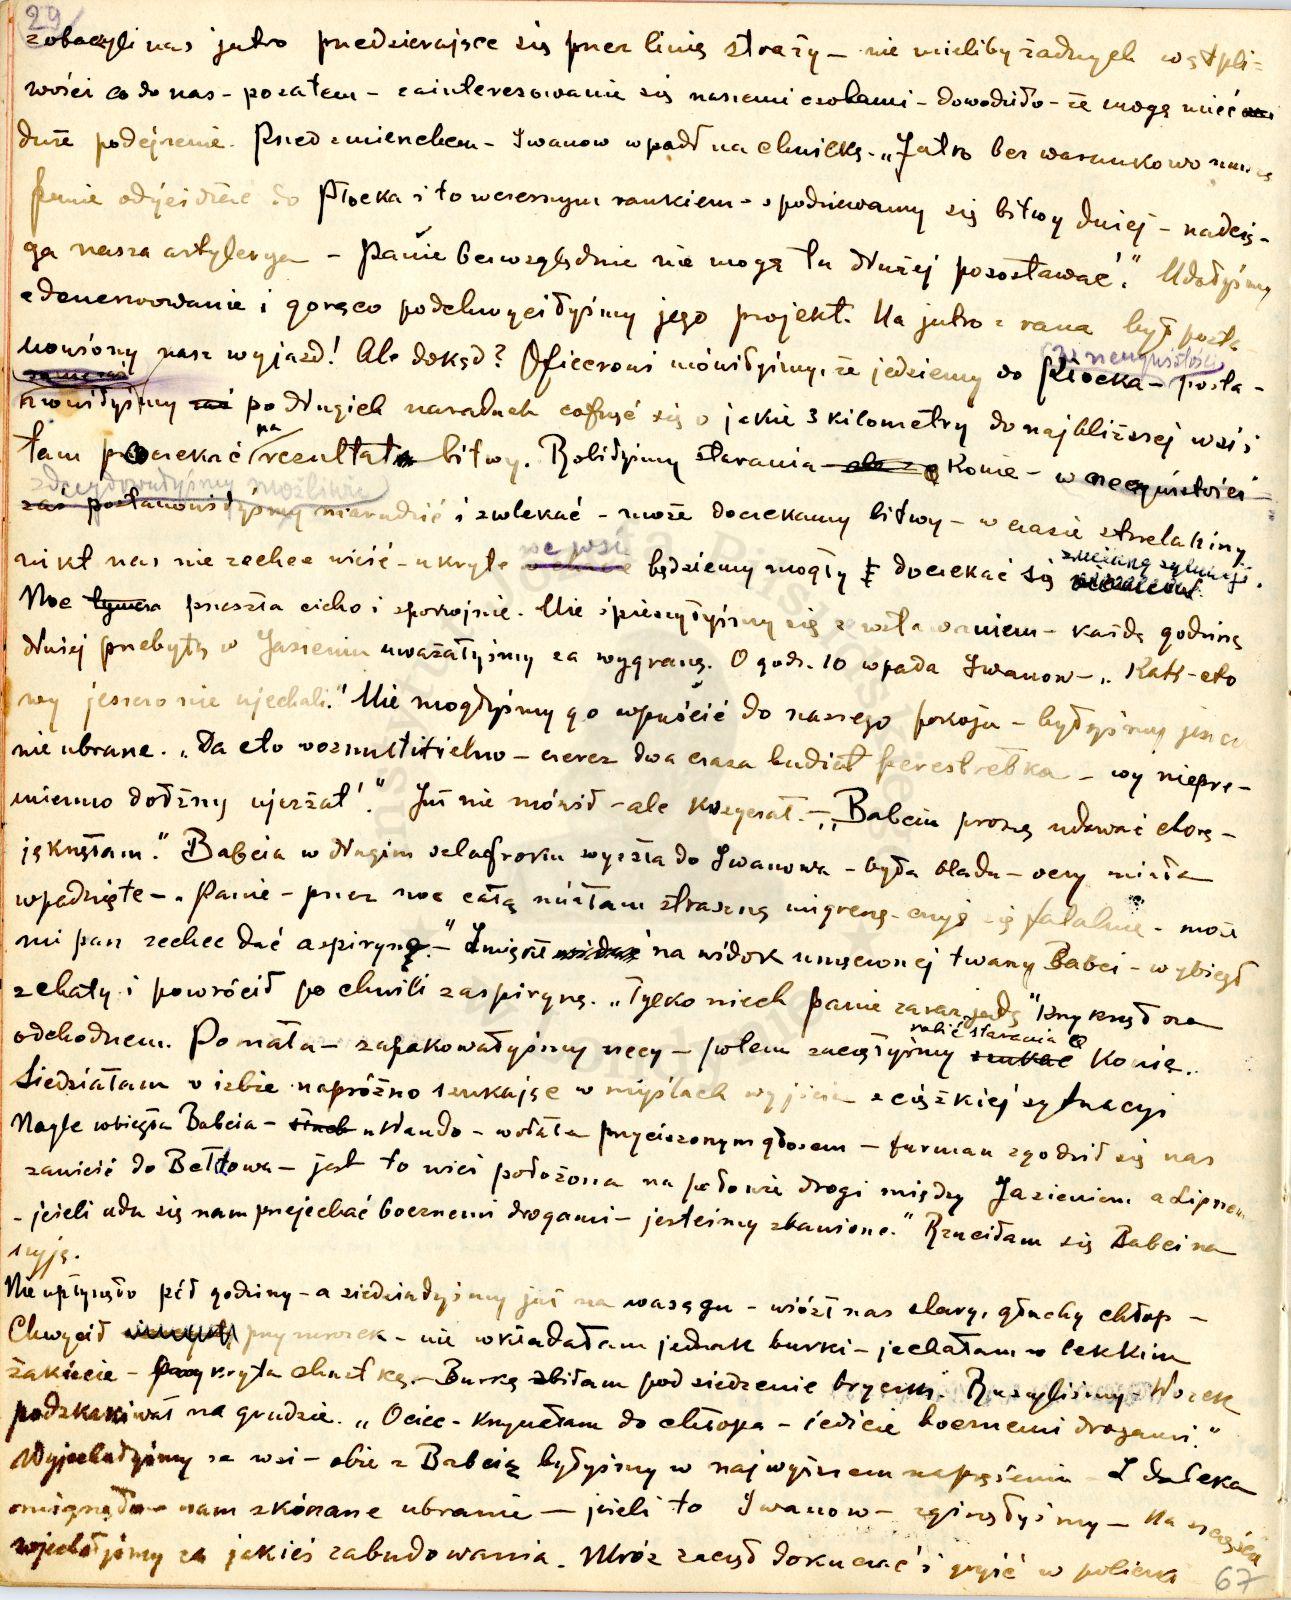 29
zobaczyli nas jutro przedzierające się przez linię straży – nie mieliby żadnych wątpli=
wości co do nas – pozatem – zainteresowanie się naszemi osobami – dowodziło – że mogą mieć
duże podejrzenie. Przed zmierzchem – Iwanow wpadł na chwilkę. – „Jutro bezwarunkowo muszą
panie odjeżdżać do Płocka i to wczesnym rankiem – spodziewamy się bitwy dużej – nadcią-
ga nasza artylerya – Panie bezwzględnie nie mogą tu dłużej pozostawać." Udałyśmy
zdenerwowanie i gorąco podchwyciłyśmy jego projekt. Na jutro z rana był posta
nowiony nasz wyjazd! Ale dokąd? Oficerowi mówiłyśmy, że jedziemy do Płocka – posta-
w rzeczywistości
nowiłyśmy zaś po długich naradach cofnąć się o jakie 3 kilometry do najbliższej wsi i
tam poczekać na rezultat bitwy. Robiłyśmy starania o konie – w rzeczywistości
zdecydowałyśmy możliwie
zaś postanowiłyśmy marudzić i zwlekać – może doczekamy bitwy – w czasie strzelaniny
nikt nas nie zechce wieźć – ukryte we wsi będziemy mogły doczekać się zmianę sytuacji.
Noc przeszła cicho i spokojnie. Nie śpieszyłyśmy się z wstawaniem – każdą godzinę
dłużej przebytą w Jasieniu uważałyśmy za wygraną. O godz. 10 wpada Iwanow – „Kak-eto
wy jeszczo nie ujechali." Nie mogłyśmy go wpuścić do naszego pokoju – byłyśmy jeszcze
nie ubrane. „Da eto wozmutitielno – czerez dwa czasa budiet perestrełka – wy niepre-
mienno dołżny ujezżat'." Już nie mówił – ale krzyczał. – „Babciu proszę udawać chorą –
jęknęłam." Babcia w długim szlafroku wyszła do Iwanowa – była blada – oczy miała
wpadnięte – „Panie – przez noc całą miałam straszną migrenę – czuję się fatalnie – może
mi pan zechce dać aspirynę. –" Zmiękł na widok zmęczonej twarzy Babci – wybiegł
z chaty i powrócił po chwili z aspiryną. „Tylko niech panie zaraz jadą" krzyknął na
odchodnem. Pomału – zapakowałyśmy rzeczy – potem zaczęłyśmy robić starania o konie.
Siedziałam w izbie napróżno szukając w myślach wyjścia z ciężkiej sytuacyi
Nagle wbiegła Babcia – Wando – wołała przyciszonym głosem – furman zgodził się nas
zawieść do Bełtowa – jest to wieś położona na połowie drogi między Jasieniem a Lipnem
– jeżeli uda się nam przejechać bocznemi drogami – jesteśmy zbawione." Rzuciłam się Babci na
szyję.
Nie upłynęło pół godziny – a siedziałyśmy już na wasągu – wiózł nas stary, głuchy chłop –
Chwycił przymrozek – nie wkładałam jednak burki – jechałam w lekkim
żakiecie – kryta chustką. – Burkę zbiłam pod siedzenie bryczki. Ruszyliśmy – Wózek
podskakiwał na grudzie. „Ociec – krzyknęłam do chłopa – jedźcie bocznemi drogami."
Wyjechałyśmy za wsi – obie z Babcią byłyśmy w najwyższem napięciu – Z daleka
mignęło nam skórzane ubranie – jeżeli to Iwanow – zginęłyśmy – Na szczęście
wjechałyśmy za jakieś zabudowania. Mróz zaczął dokuczać i gryźć w policzki
67